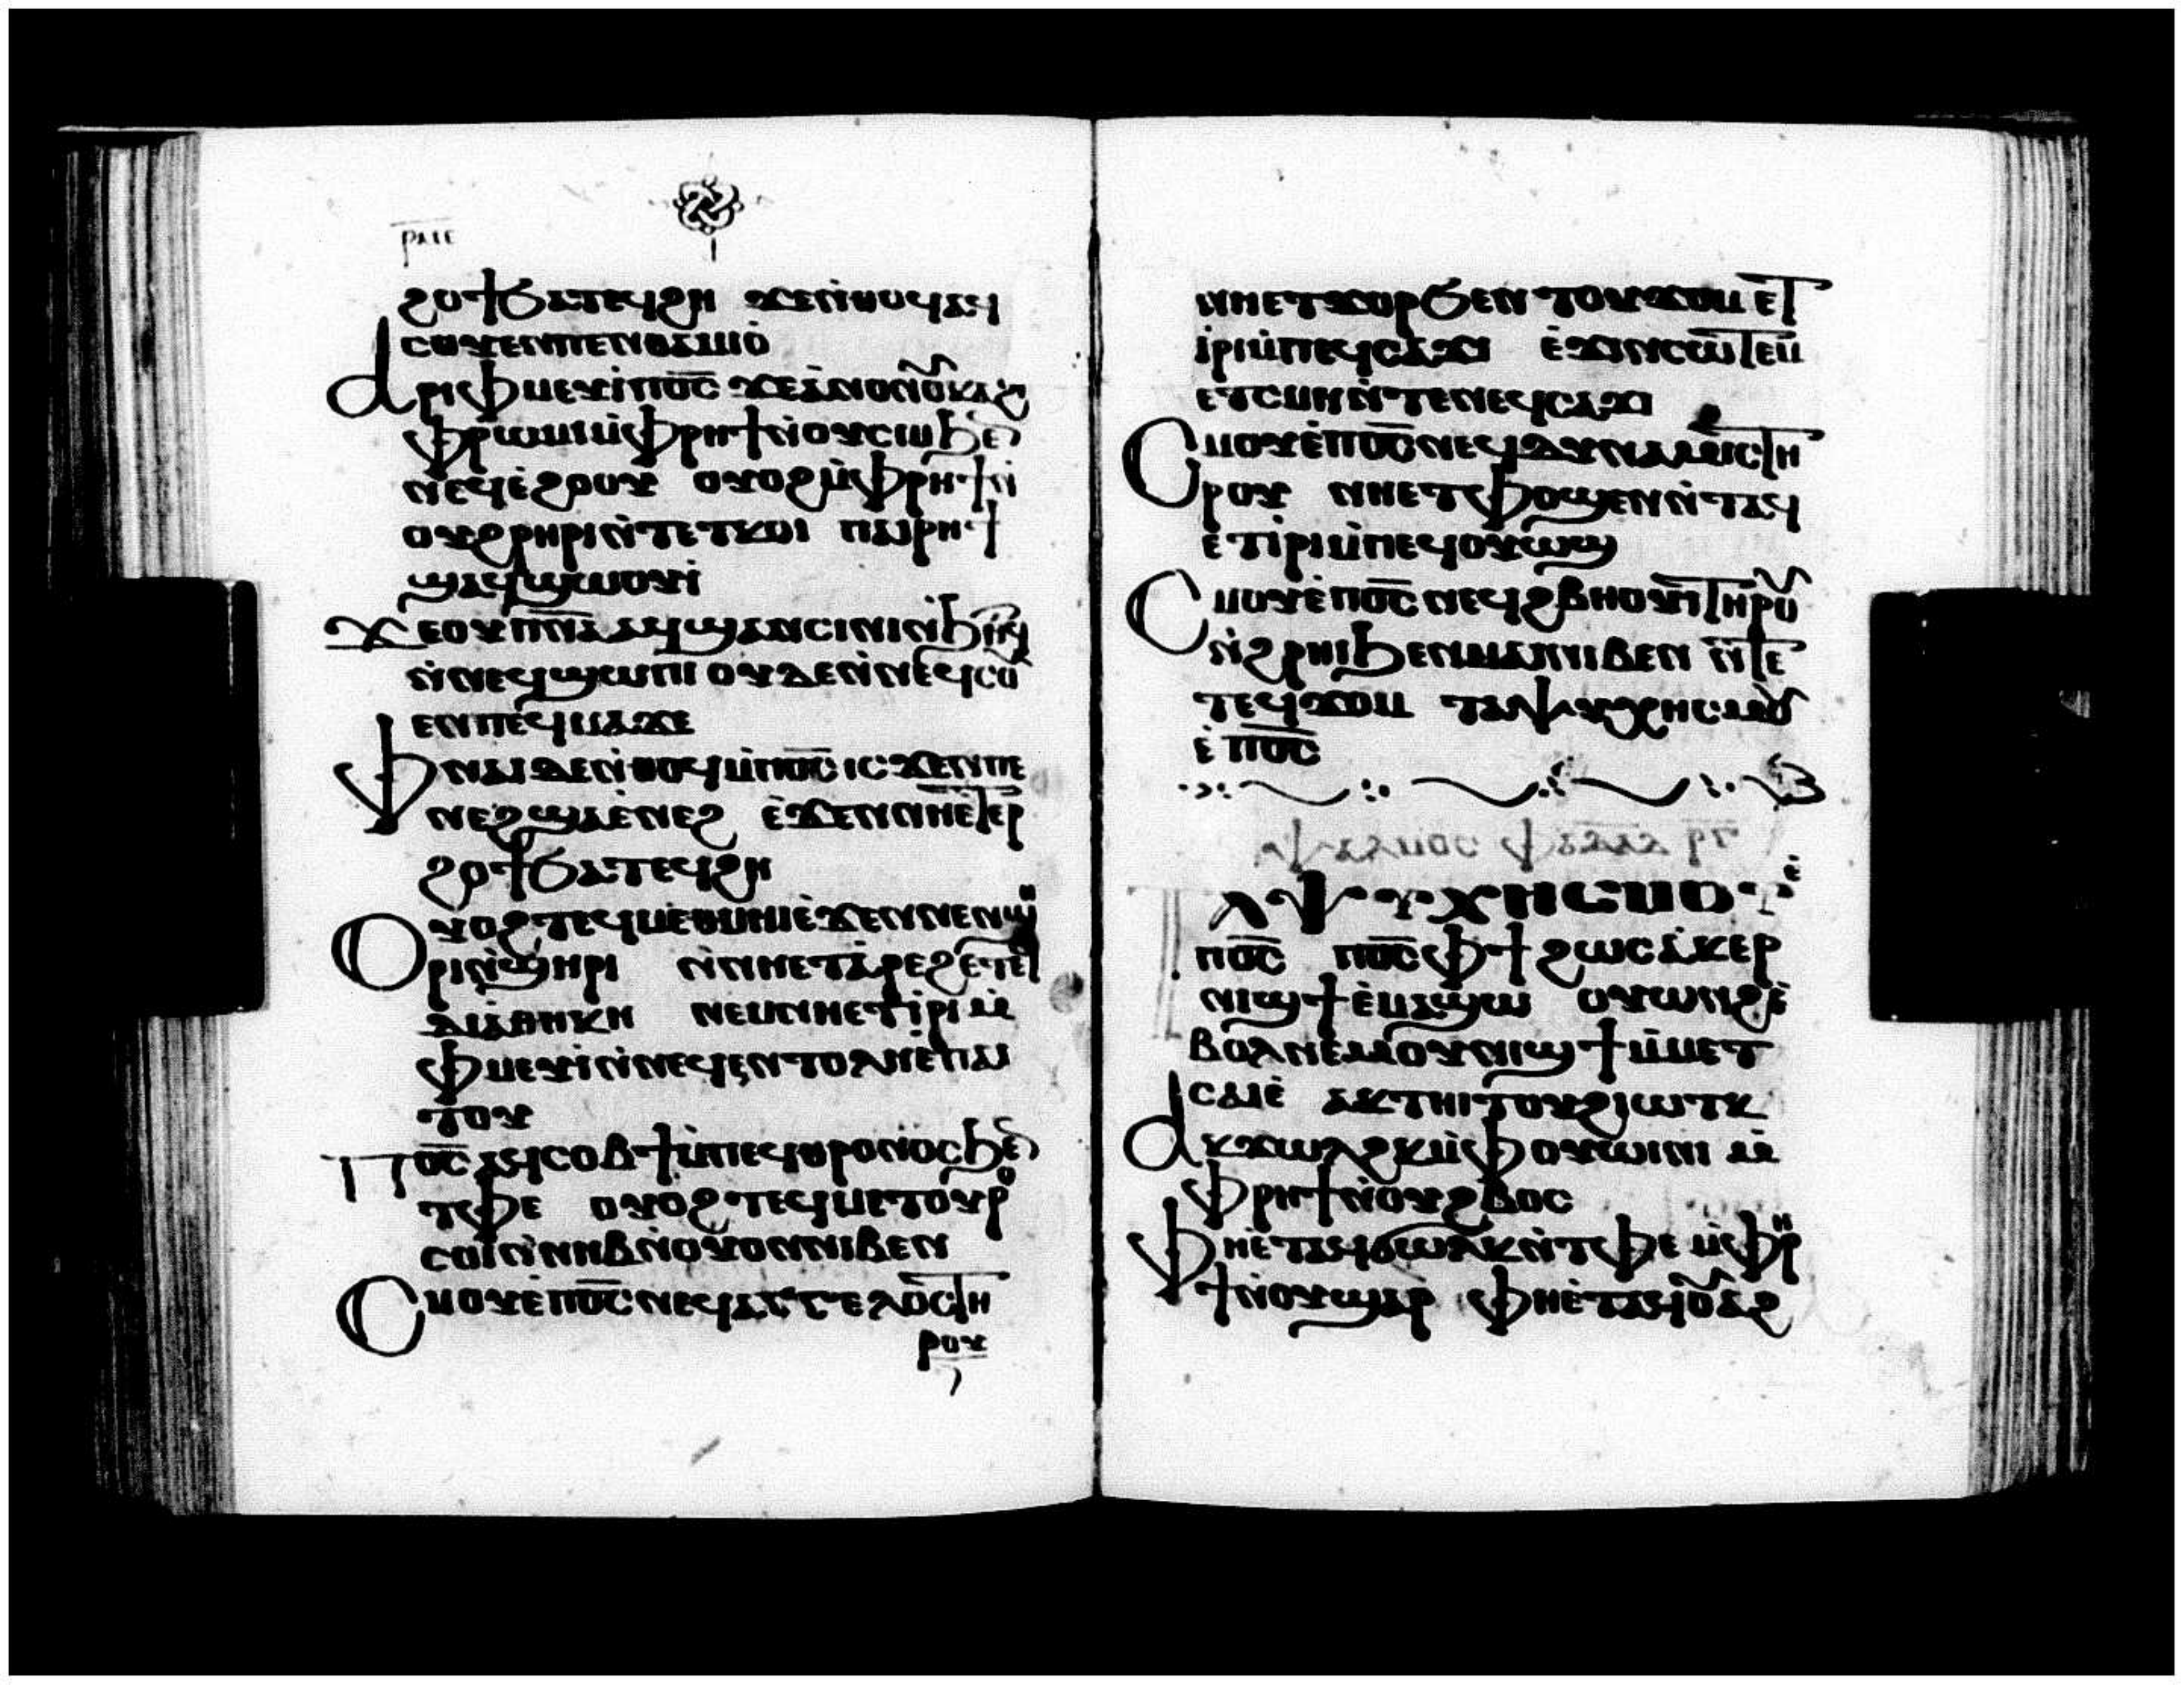 ⲣⲙⲉ
ϩⲟϯϧⲁⲧⲉϥϩⲏ ϫⲉⲛ̀ⲑⲟϥⲁϥ
ⲥⲟⲩⲉⲛⲡⲉⲛⲑⲁⲙⲓⲟ̀
Ⲁⲣⲓⲫⲙⲉⲩⲓ̀ⲡⲟ̅ⲥ̅ ϫⲉⲁ̀ⲛⲟⲛⲟⲩⲕⲁϩⲓ
ⲫⲣⲱⲙⲓⲙ̀ⲫⲣⲏϯⲛ̀ⲟⲩⲥⲓⲙϧⲉⲛ
ⲛⲉϥⲉ̀ϩⲟⲟⲩ ⲟⲩⲟϩⲙ̀ⲫⲣⲏϯⲛ̀
ⲟⲩϩⲣⲏⲣⲓⲛ̀ⲧⲉⲧⲕⲟⲓ ⲡⲁⲓⲣⲏϯ
ϣⲁϥϣⲱⲟⲩⲓ̀
Ϫⲉⲟⲩⲡ̅ⲛ̅ⲁ̅ⲁϥϣⲁⲛⲥⲓⲛⲓⲛ̀ϧⲏⲧϥ
ⲛ̀ⲛⲉϥϣⲱⲡⲓ ⲟⲩⲇⲉⲛ̀ⲛⲉϥⲥⲟⲩ
ⲉⲛⲡⲉϥⲙⲁϫⲉ
Ⲫⲛⲁⲓⲇⲉⲛ̀ⲑⲟϥⲙ̀ⲡⲟ̅ⲥ̅ ⲓⲥϫⲉⲛⲡⲉ
ⲛⲉϩϣⲁⲉ̀ⲛⲉϩ ⲉ̀ϫⲉⲛⲛⲏⲉⲧⲉⲣ
ϩⲟϯϧⲁⲧⲉϥϩⲏ
Ⲟⲩⲟϩⲧⲉϥⲙⲉⲑⲙⲏⲓⲉ̀ϫⲉⲛⲛⲉⲛϣⲏ
ⲣⲓⲛ̀ϣⲏⲣⲓ ⲛ̀ⲛⲏⲉⲧⲁ̀ⲣⲉϩⲉ̀ⲧⲉϥ
ⲇⲓⲁⲑⲏⲕⲏ ⲛⲉⲙⲛⲏⲉⲧⲓ̀ⲣⲓⲙ̀
ⲫⲙⲉⲩⲓ̀ⲛ̀ⲛⲉϥⲉⲛⲧⲟⲗⲏⲉ̀ⲡⲁⲓ
ⲧⲟⲩ
Ⲡⲟ̅ⲥ̅ ⲁϥⲥⲟⲃϯⲙ̀ⲡⲉϥⲑⲣⲟⲛⲟⲥϧⲉⲛ
ⲧⲫⲉ ⲟⲩⲟϩⲧⲉϥⲙⲉⲧⲟⲩⲣⲟ
ⲥⲟⲓⲛ̀ⲛⲏⲃⲛ̀ⲟⲩⲟⲛⲛⲓⲃⲉⲛ
Ⲥⲙⲟⲩⲉ̀ⲡⲟ̅ⲥ̅ⲛⲉϥⲁⲅⲅⲉⲗⲟⲥⲧⲏ
ⲣⲟⲩ
ⲛⲏⲉⲧϫⲟⲣϧⲉⲛ ⲧⲟⲩϫⲟⲙ ⲉⲧ
ⲓ̀ⲣⲓⲙ̀ⲡⲉϥⲥⲁϫⲓ ⲉ̀ϫⲓⲛⲥⲱⲧⲉⲙ
ⲉ̀ⲧⲥⲙⲏⲛ̀ⲧⲉⲛⲉϥⲥⲁϫⲓ
Ⲥⲙⲟⲩⲉ̀ⲡⲟ̅ⲥ̅ⲛⲉϥⲇⲩⲛⲁⲙⲓⲥⲧⲏ
ⲣⲟⲩ ⲛⲏⲉⲧⲫⲟϣⲉⲛⲛ̀ⲧⲁϥ
ⲉⲧⲓ̀ⲣⲓⲙ̀ⲡⲉϥⲟⲩⲱϣ
Ⲥⲙⲟⲩⲉ̀ⲡⲟ̅ⲥ̅ ⲛⲉϥϩⲃⲏⲟⲩⲓ̀ⲧⲏⲣⲟⲩ
ⲛ̀ϩⲣⲏⲓϧⲉⲛⲙⲁⲓⲛⲓⲃⲉⲛ ⲛ̀ⲧⲉ
ⲧⲉϥϫⲟⲙ ⲧⲁⲯⲩⲭⲏⲥⲙⲟⲩ
ⲉ̀ ⲡⲟ̅ⲥ̅
ⲁⲯⲩⲭⲏⲥⲙⲟⲩⲉ̀
ⲡⲟ̅ⲥ̅ ⲡⲟ̅ⲥ̅ⲫϯ ϩⲱⲥⲁ̀ⲕⲉⲣ
ⲛⲓϣϯⲉ̀ⲙⲁϣⲱ ⲟⲩⲱⲛϩⲉ̀
ⲃⲟⲗⲛⲉⲙⲟⲩⲛⲓϣϯⲙ̀ⲙⲉⲧ
ⲥⲁⲓⲉ̀ ⲁⲕⲧⲏⲓⲧⲟⲩϩⲓⲱⲧⲕ
Ⲁⲕϫⲱⲗϩⲕⲙ̀ⲫⲟⲩⲱⲓⲛⲓ ⲙ̀
ⲫⲣⲏϯⲛ̀ⲟⲩϩⲃⲟⲥ
Ⲫⲏⲉ̀ⲧⲁϥϭⲱⲗⲕⲛ̀ⲧⲫⲉ ⲙ̀ⲫⲣⲏ
ϯⲛ̀ⲟⲩϣⲁⲣ ⲫⲏⲉ̀ⲧⲁϥⲟⲩⲁϩ